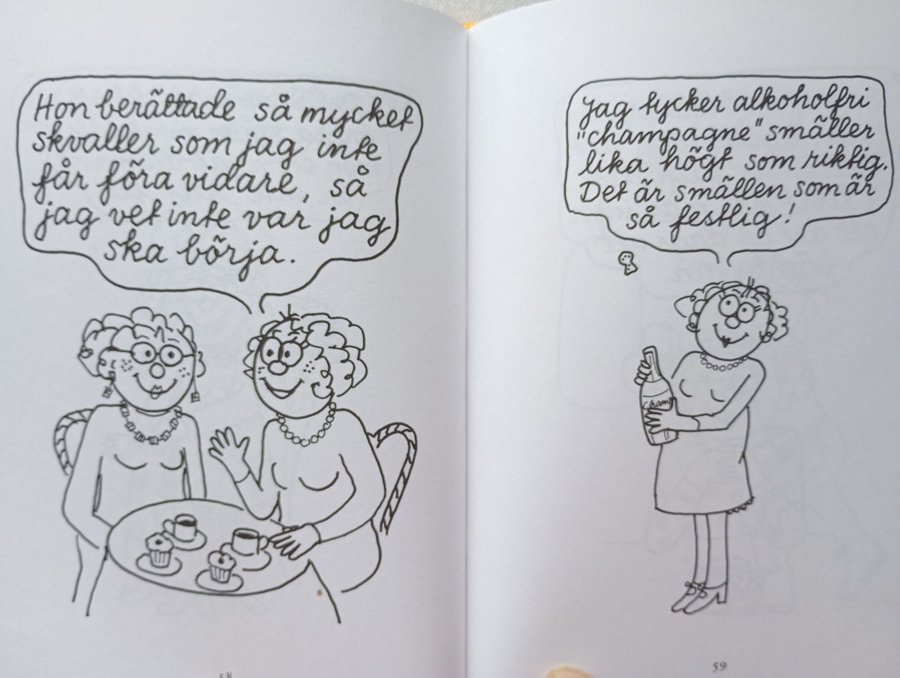 Hon berättade så mycket
skvaller som jag inte
får föra vidare, så
jag vet inte var jag
ska börja.
58
Jag tycker alkoholfri
"champagne" smäller
lika högt som riktig.
Det är smällen som är
så festlig!
Cham
59